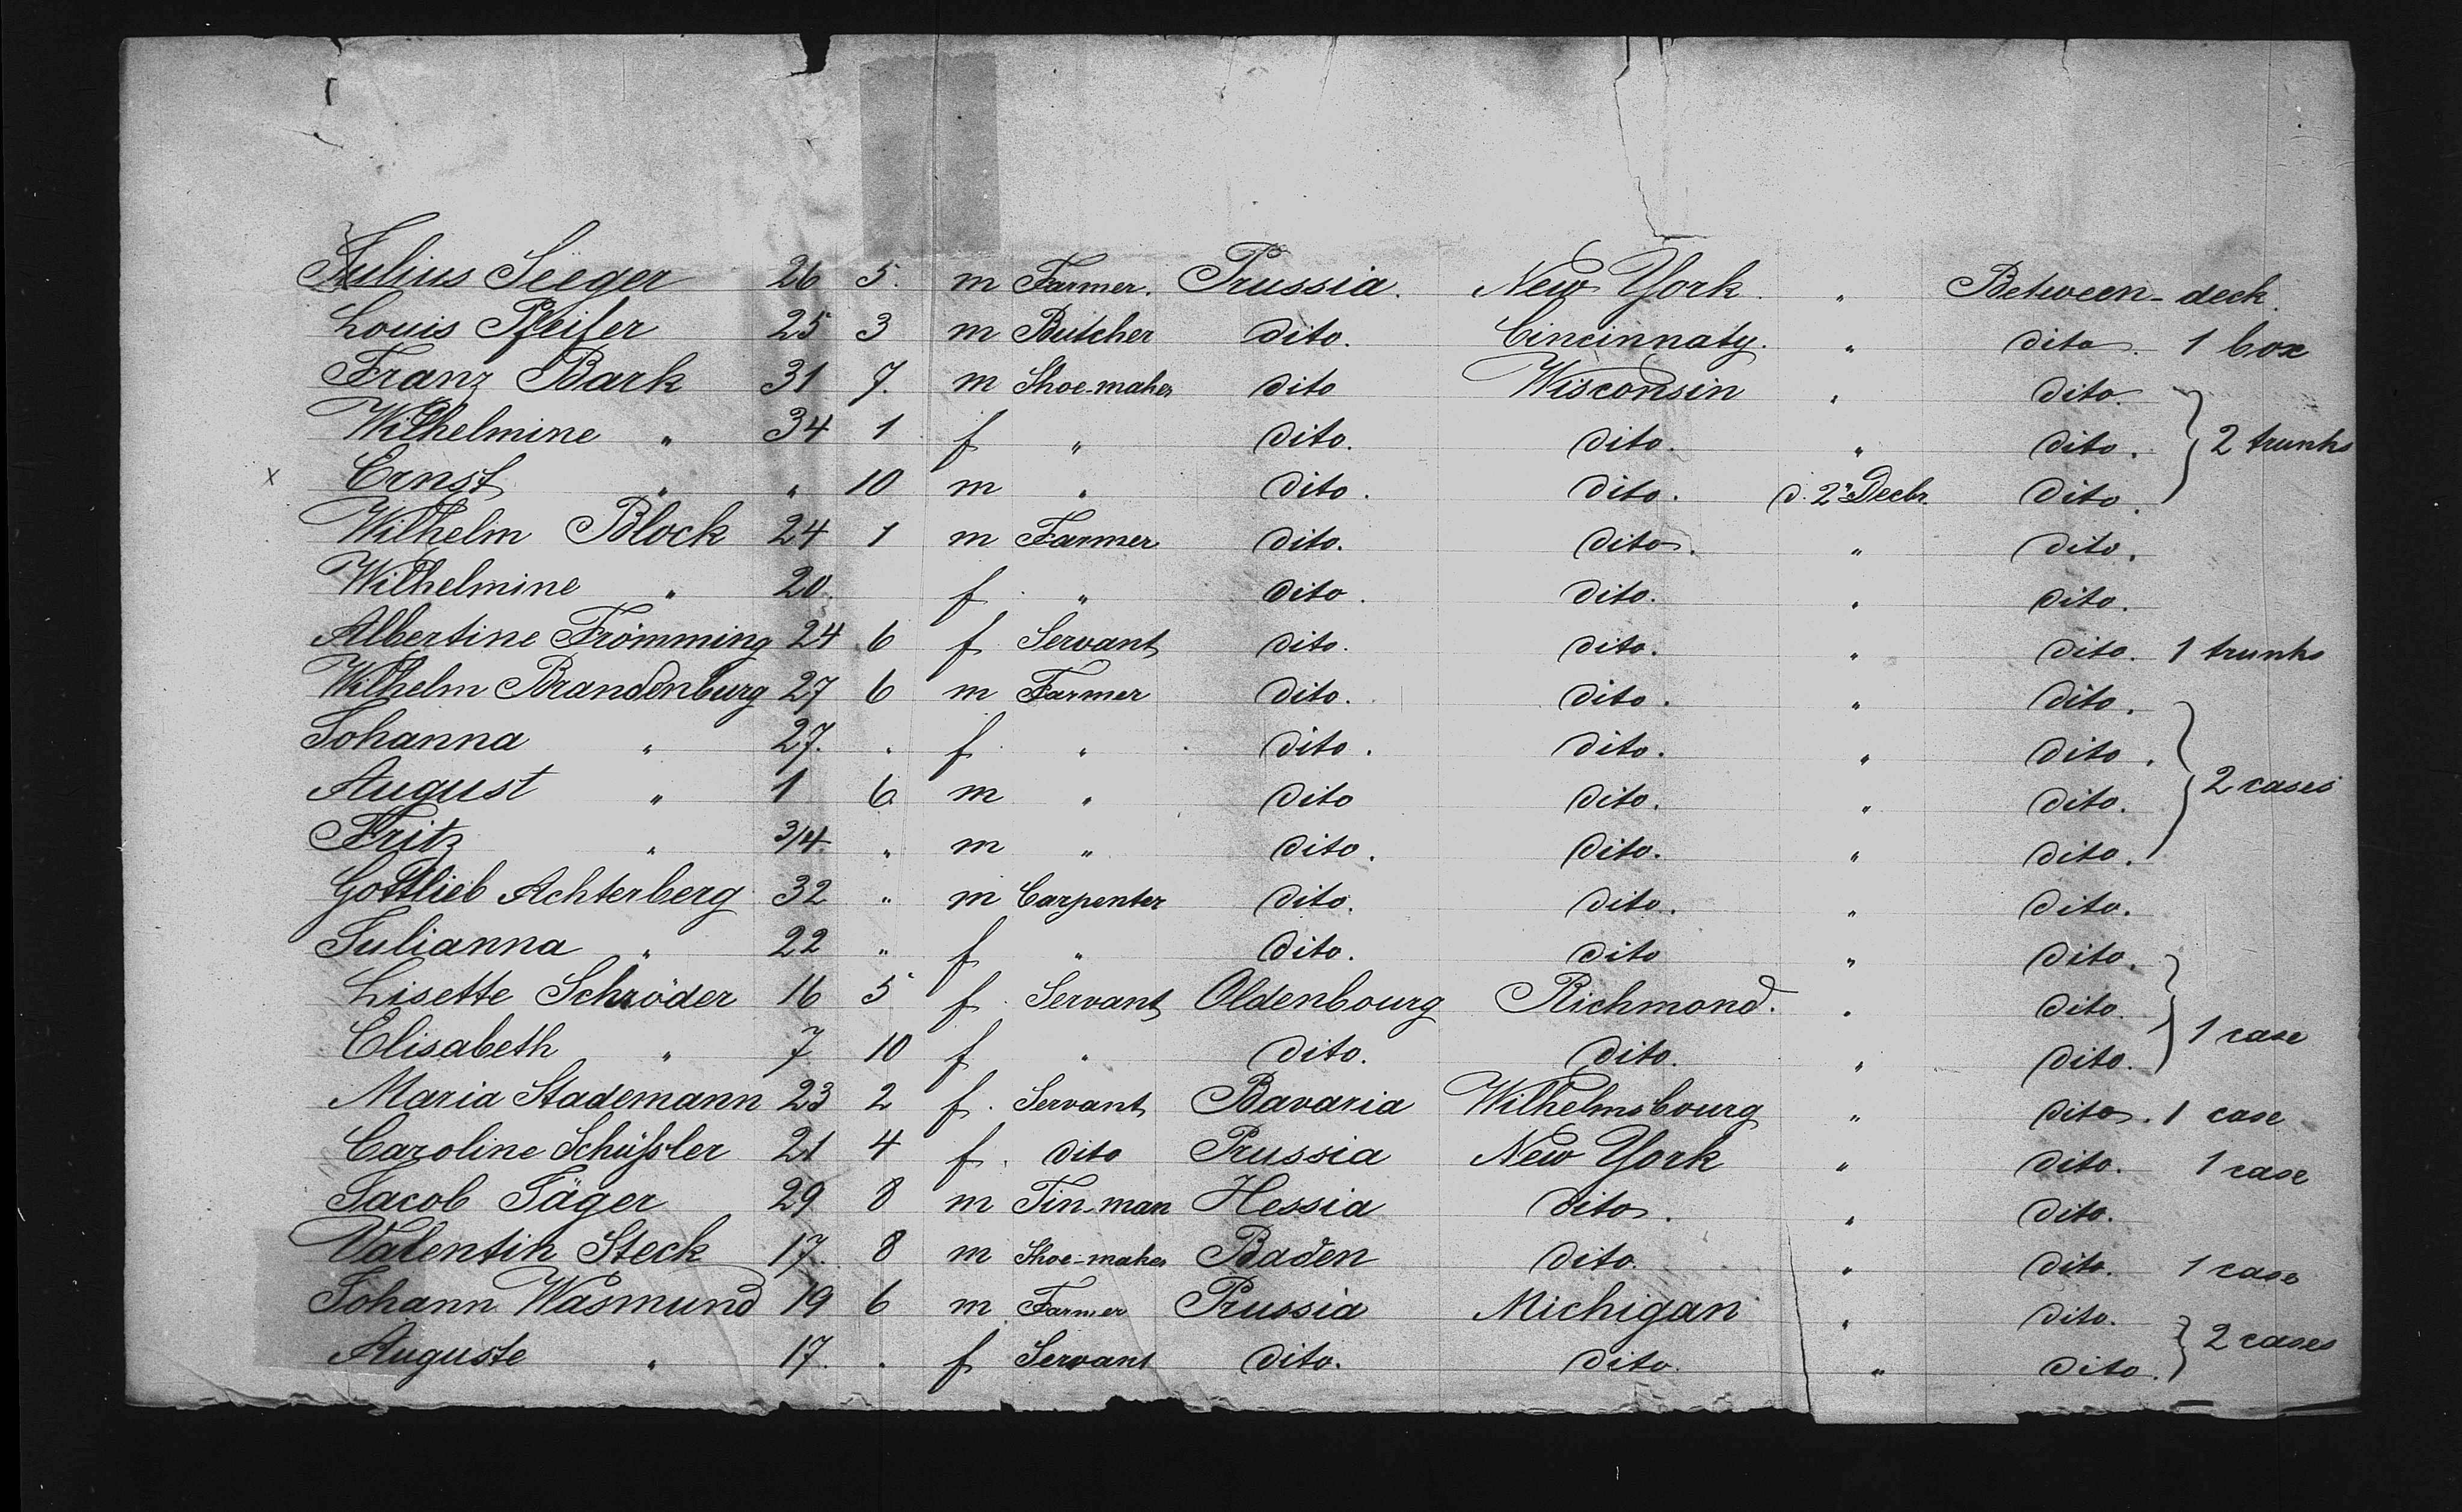 Julius Seeger 26 5. m Farmer. Prussia. New York. " Between-deck.
Louis Pfeifer 25 3 m Butcher dito. Cincinnaty. " dito. 1 box
Franz Bark 31 7. m Shoe-maker dito Wisconsin " dito.
Wilhelmine " 34 1 f " dito. dito. " dito. } 2 trunks
x Ernst " " 10 m " dito. dito. d. 2" Decbr. dito.
Wilhelm Block 24 1 m Farmer dito. dito. " dito.
Wilhelmine " 20. f. " dito. dito. " dito.
Albertine Frömming 24 6 f. Servant dito. dito. " dito. 1 trunks
Wilhelm Brandenburg 27 6 m Farmer dito. dito. " dito.
Johanna " 27. " f. " dito. dito. " dito.
August " 1 6 m " dito dito. " dito. } 2 cases
Fritz " 3/4. " m " dito. dito. " dito.
Gottlieb Achterberg 32 " m Carpenter dito. dito. " dito.
Julianna " 22 " f " dito. dito " dito.
Lisette Schröder 16 5 f. Servant Oldenbourg Richmond. " dito.
Elisabeth " 7 10 f " dito. dito. " dito. } 1 case
Maria Stademann 23 2 f. Servant Bavaria Wilhelmsbourg " dito. 1 case
Caroline Schüßler 21 4 f. dito Prussia New York " dito. 1 case
Jacob Jäger 29 8 m Tin-man Hessia dito. " dito.
Valentin Steck 17. 8 m Shoe-maker Baden dito. " dito. 1 case
Johann Wasmund 19 6 m Farmer Prussia Michigan " dito.
Auguste " 17. " f Servant dito. dito. " dito. } 2 cases